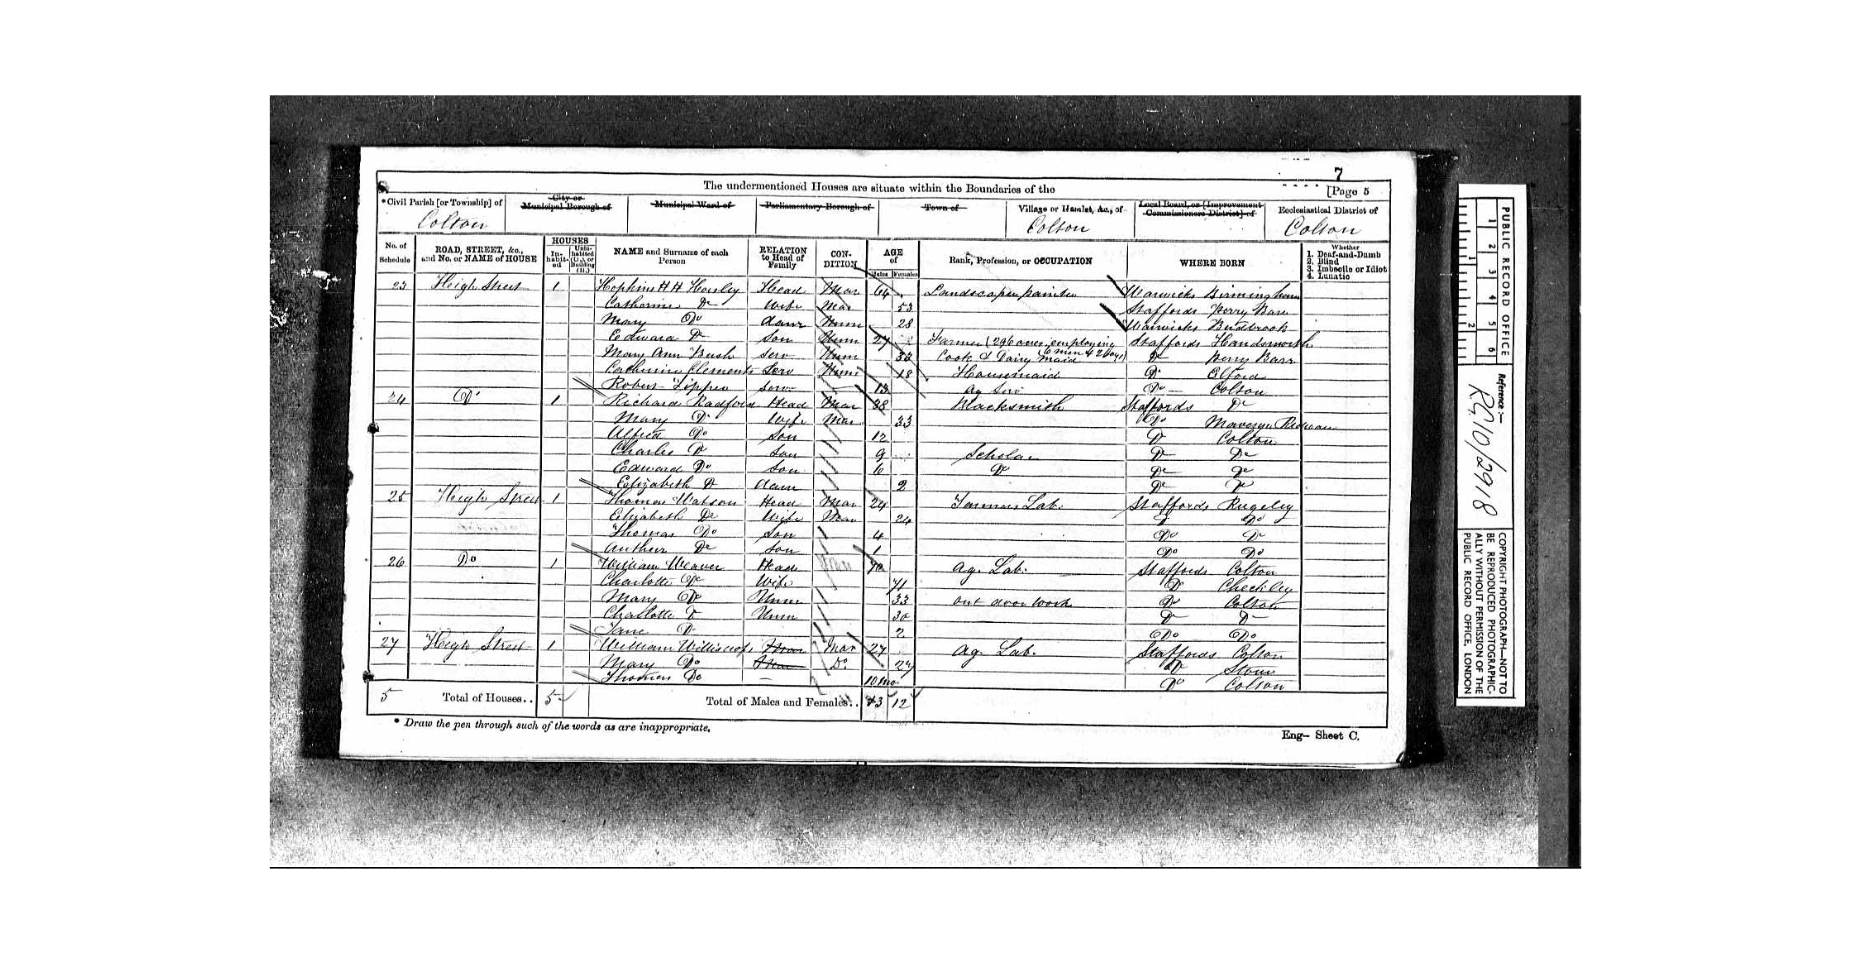 7
The undermentioned Houses are situate within the Boundaries of the [Page 5
*Civil Parish [or Township] of City or Municipal Borough of Municipal Ward of Parliamentary Borough of Town of Village or Hamlet, &c., of Local Board, or [Improvement Commissioners District] of Ecclesiastical District of
Colton Colton Colton
No. of Schedule ROAD, STREET, &c., and No. or NAME of HOUSE HOUSES In-habit-ed Unin-habited (U.), or Building (B.) NAME and Surname of each Person RELATION to Head of Family CON-DITION AGE of Males Females Rank, Profession, or OCCUPATION WHERE BORN Whether 1. Deaf-and-Dumb 2. Blind 3. Imbecile or Idiot 4. Lunatic
23 High Street 1 Hopkins H H Horsley Head Mar 64 Landscape painter Warwicks Birmingham
Catherine Do Wife Mar 53 Staffords Perry Barr
Mary Do daur Unm 28 Warwicks Budbrook
Edward Do Son Unm 27 Farmer (296 acres employing 6 men & 2 boys) Staffords Handsworth
Mary Ann Bush Serv Unm 33 Cook & Dairy maid Do Perry Barr
Catherine Clements Serv Unm 18 Housemaid Do Elford
Robert Serv 13 Ag Serv Do Colton
24 Do 1 Richard Radford Head Mar 38 Blacksmith Staffords Do
Mary Do Wife Mar 33 Do Mavesyn Ridware
Alfred Do Son 12 Do Colton
Charles Do Son 9 Scholar Do Do
Edward Do Son 6 Do Do Do
Elizabeth Do daur 2 Do Do
25 High Street 1 Thomas Watson Head Mar 24 Farmers Lab. Staffords Rugeley
Elizabeth Do Wife Mar 24 Do Do
Thomas Do Son 4 Do Do
Arthur Do Son 1 Do Do
26 Do 1 William Weaver Head 70 Ag. Lab. Staffords Colton
Charlotte Do Wife 71 Do Checkley
Mary Do Unm 33 out door work Do Colton
Charlotte Do Unm 30 Do Do
Jane Do 2 Do Do
27 High Street 1 William Williscroft Mar 27 Ag. Lab. Staffords Colton
Mary Do Do 27 Do Stow
Thomas Do – 10 mo Do Colton
5 Total of Houses.. 5 Total of Males and Females.. 13 12
* Draw the pen through such of the words as are inappropriate.
Eng– Sheet C.
PUBLIC RECORD OFFICE
1 2 3 4 5 6
1 2
Reference:–
RG10/2918
COPYRIGHT PHOTOGRAPH—NOT TO
BE REPRODUCED PHOTOGRAPHIC-
ALLY WITHOUT PERMISSION OF THE
PUBLIC RECORD OFFICE, LONDON